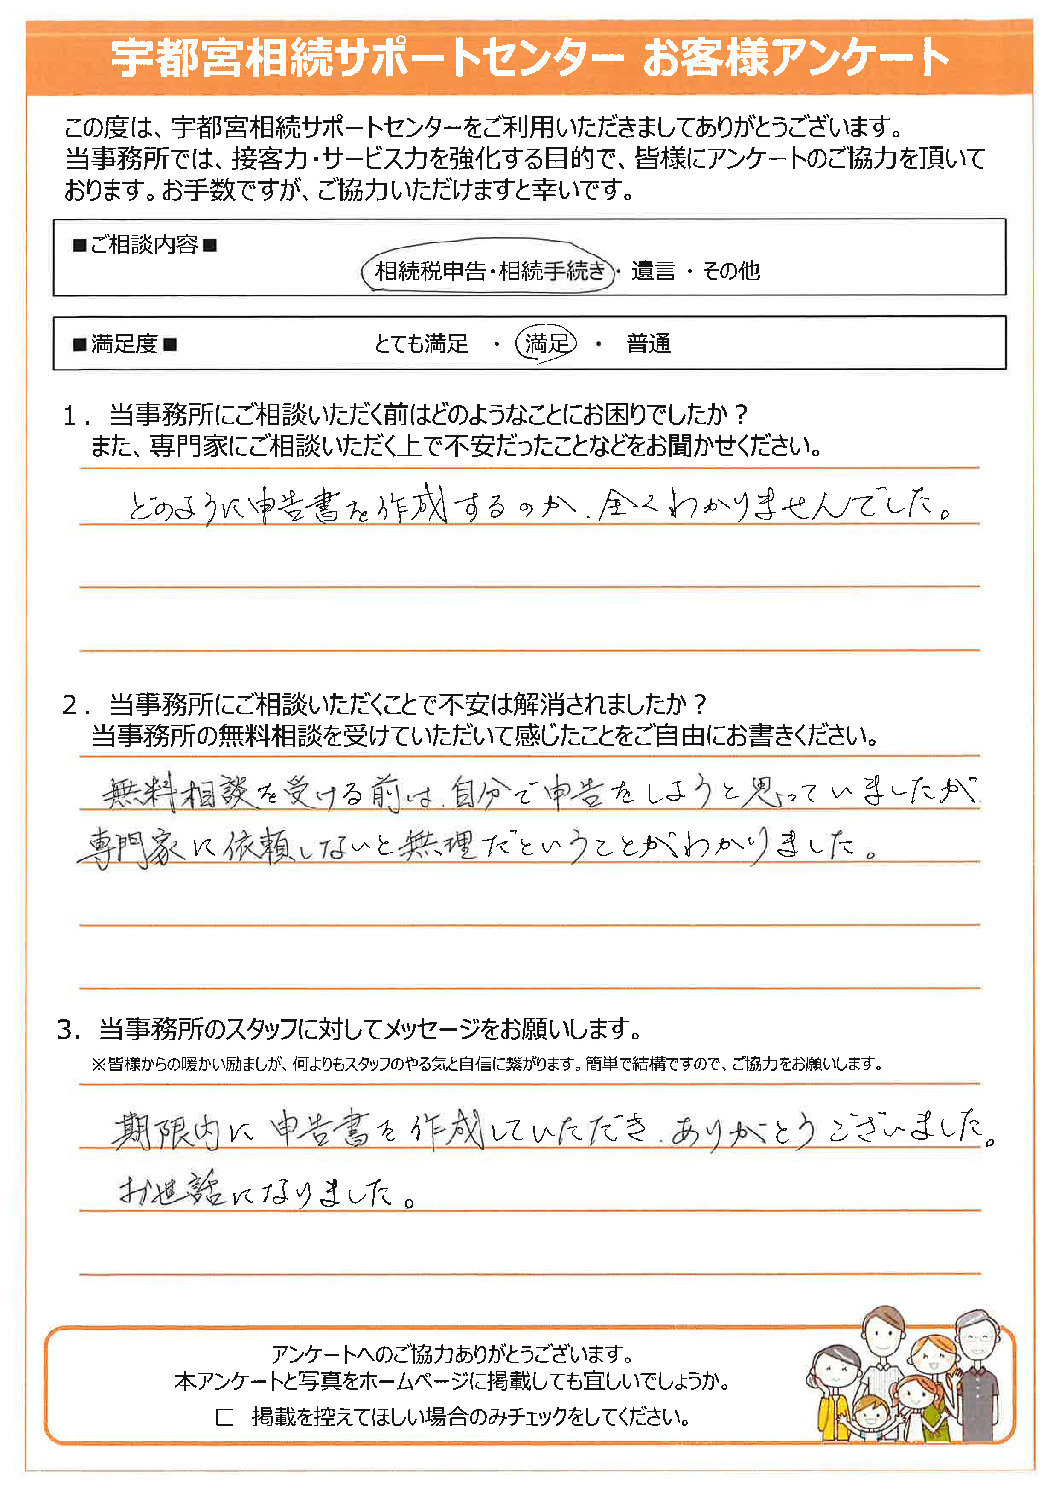 宇都宮相続サポートセンター お客様アンケート
この度は、宇都宮相続サポートセンターをご利用いただきましてありがとうございます。
当事務所では、接客力・サービス力を強化する目的で、皆様にアンケートのご協力を頂いて
おります。お手数ですが、ご協力いただけますと幸いです。
■ご相談内容■
相続税申告・相続手続き・遺言・その他
■満足度■ とても満足 ・ 満足 ・ 普通
1．当事務所にご相談いただく前はどのようなことにお困りでしたか？
また、専門家にご相談いただく上で不安だったことなどをお聞かせください。
どのように申告書を作成するのか、全くわかりませんでした。
2．当事務所にご相談いただくことで不安は解消されましたか？
当事務所の無料相談を受けていただいて感じたことをご自由にお書きください。
無料相談を受ける前は、自分で申告をしようと思っていましたが、
専門家に依頼しないと無理だということがわかりました。
3．当事務所のスタッフに対してメッセージをお願いします。
※皆様からの暖かい励ましが、何よりもスタッフのやる気と自信に繋がります。簡単で結構ですので、ご協力をお願いします。
期限内に申告書を作成していただき、ありがとうございました。
お世話になりました。
アンケートへのご協力ありがとうございます。
本アンケートと写真をホームページに掲載しても宜しいでしょうか。
□ 掲載を控えてほしい場合のみチェックをしてください。